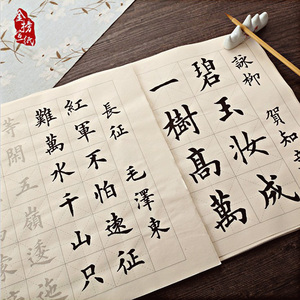 詠柳 賀知
碧玉妝成
一樹高萬
長征 毛澤東
紅軍不怕遠征
難萬水千山只
等閒五嶺逶迤